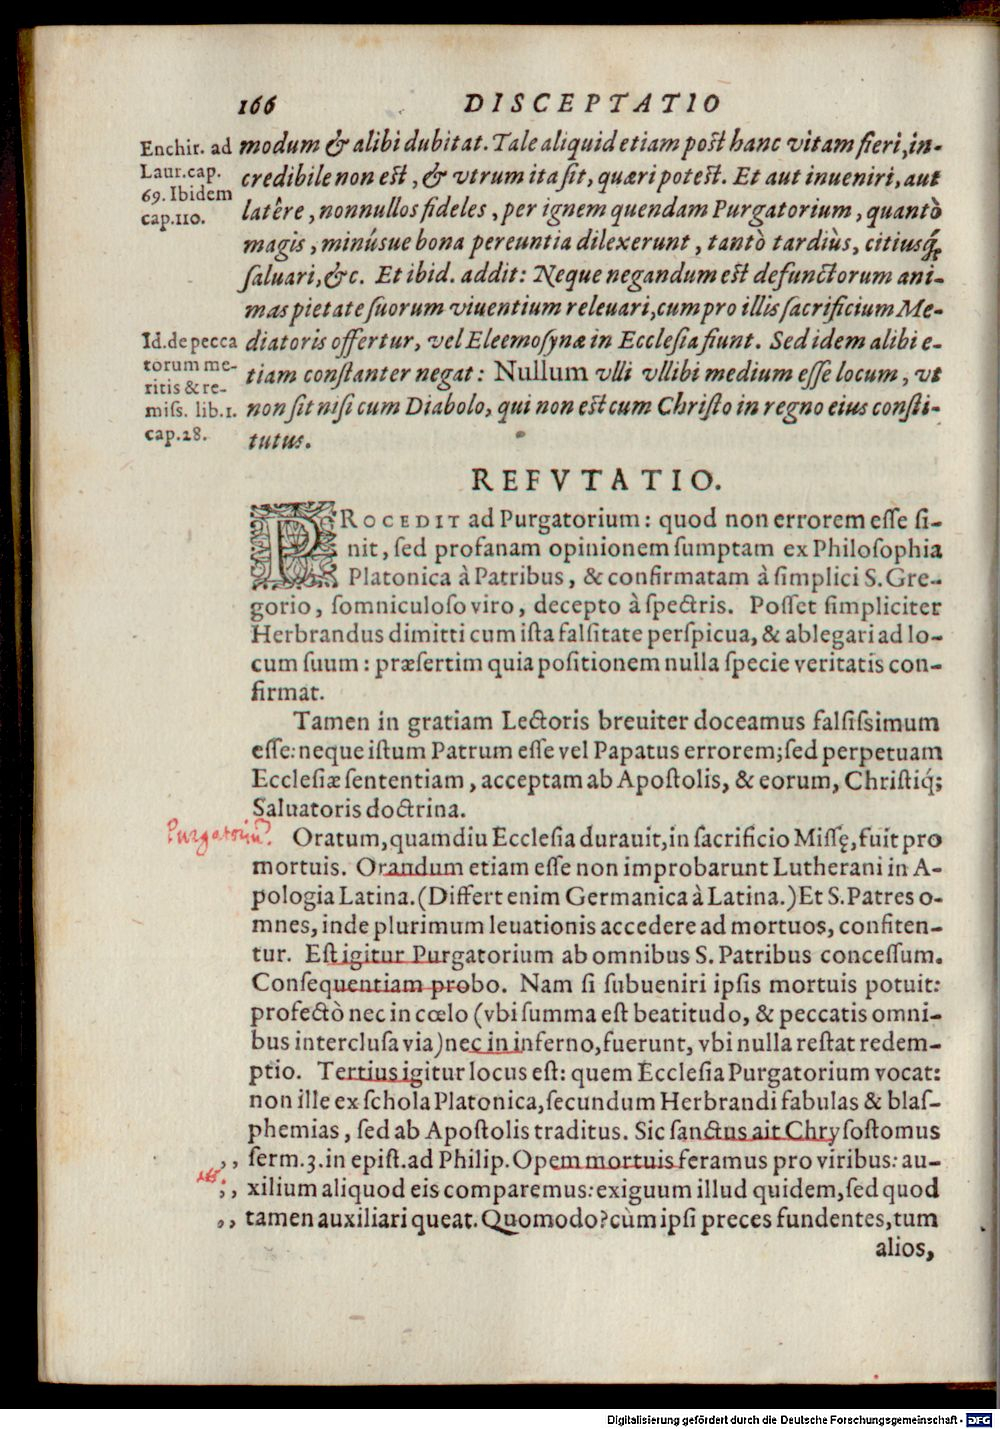 166 DISCEPTATIO
Enchir. ad
Laur. cap.
69. Ibidem
cap. 110.
modum & alibi dubitat. Tale aliquid etiam post hanc vitam fieri, in-
credibile non est, & vtrum ita sit, quæri potest. Et aut inueniri, aut
latêre, nonnullos fideles, per ignem quendam Purgatorium, quantò
magis, minúsue bona pereuntia dilexerunt, tantò tardiùs, citiusq́;
saluari, &c. Et ibid. addit: Neque negandum est defunctorum ani-
mas pietate suorum viuentium releuari, cum pro illis sacrificium Me-
Id. de pecca
torum me-
ritis & re-
miss. lib. 1.
cap. 28.
diatoris offertur, vel Eleemosynæ in Ecclesia fiunt. Sed idem alibi e-
tiam constanter negat: Nullum vlli vllibi medium esse locum, vt
non sit nisi cum Diabolo, qui non est cum Christo in regno eius consti-
tutus.
REFVTATIO.
PROCEDIT ad Purgatorium: quod non errorem esse si-
nit, sed profanam opinionem sumptam ex Philosophia
Platonica à Patribus, & confirmatam à simplici S. Gre-
gorio, somniculoso viro, decepto à spectris. Posset simpliciter
Herbrandus dimitti cum ista falsitate perspicua, & ablegari ad lo-
cum suum: præsertim quia positionem nulla specie veritatis con-
firmat.
Tamen in gratiam Lectoris breuiter doceamus falsissimum
esse: neque istum Patrum esse vel Papatus errorem; sed perpetuam
Ecclesiæ sententiam, acceptam ab Apostolis, & eorum, Christiq́;
Saluatoris doctrina.
Purgatoriũ?
Oratum, quamdiu Ecclesia durauit, in sacrificio Missę, fuit pro
mortuis. Orandum etiam esse non improbarunt Lutherani in A-
pologia Latina. (Differt enim Germanica à Latina.) Et S. Patres o-
mnes, inde plurimum leuationis accedere ad mortuos, confiten-
tur. Est igitur Purgatorium ab omnibus S. Patribus concessum.
Consequentiam probo. Nam si subueniri ipsis mortuis potuit:
profectò nec in cœlo (vbi summa est beatitudo, & peccatis omni-
bus interclusa via) nec in inferno, fuerunt, vbi nulla restat redem-
ptio. Tertius igitur locus est: quem Ecclesia Purgatorium vocat:
non ille ex schola Platonica, secundum Herbrandi fabulas & blas-
phemias, sed ab Apostolis traditus. Sic sanctus ait Chrysostomus
,, serm. 3. in epist. ad Philip. Opem mortuis feramus pro viribus: au-
,, xilium aliquod eis comparemus: exiguum illud quidem, sed quod
,, tamen auxiliari queat. Quomodo? cùm ipsi preces fundentes, tum
alios,
Digitalisierung gefördert durch die Deutsche Forschungsgemeinschaft - DFG